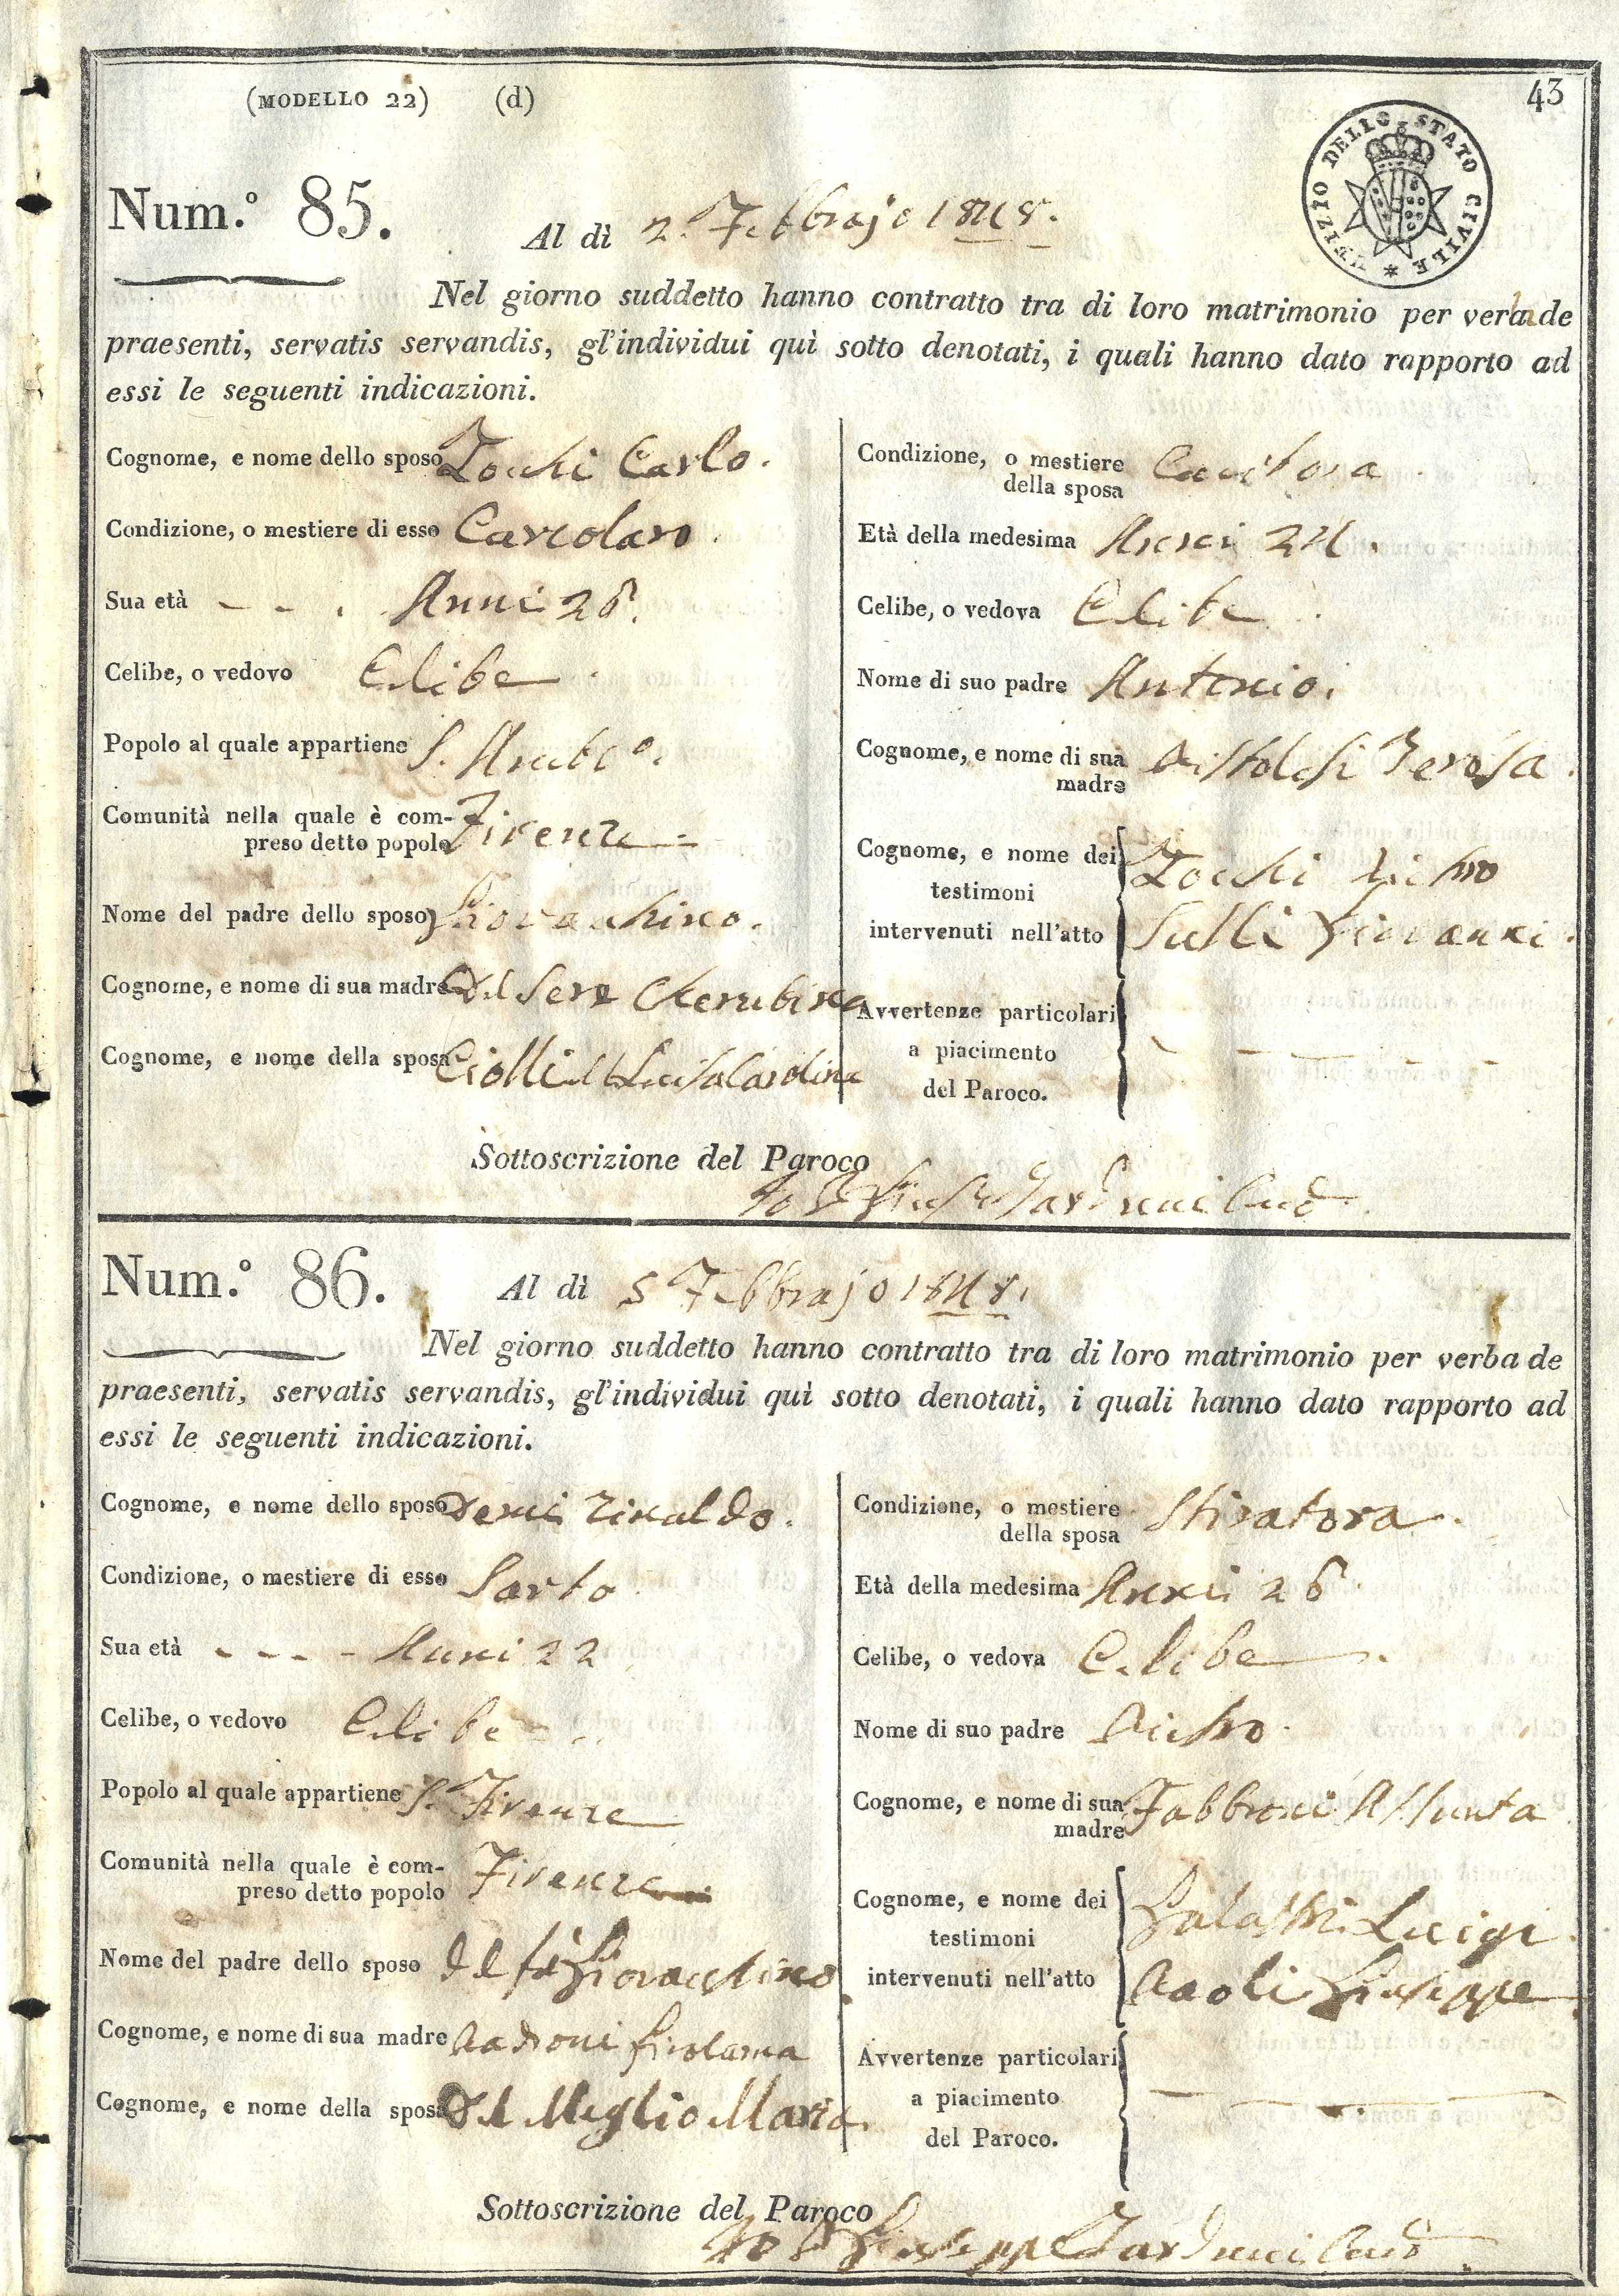 (MODELLO 22) (d)
43
UFIZIO DELLO STATO CIVILE *
Num.º 85.
Al dì 2. Febbrajo 1848.
Nel giorno suddetto hanno contratto tra di loro matrimonio per verba de
praesenti, servatis servandis, gl'individui quì sotto denotati, i quali hanno dato rapporto ad
essi le seguenti indicazioni.
Cognome, e nome dello sposo Zocchi Carlo.
Condizione, o mestiere di esso
Sua età - - . Anni 26.
Celibe, o vedovo Celibe.
Popolo al quale appartiene S. Amb.º
Comunità nella quale è com-
preso detto popolo Firenze
Nome del padre dello sposo Giovacchino.
Cognome, e nome di sua madre Del Sere Cherubina
Cognome, e nome della sposa Ciolli Carolina
Condizione, o mestiere
della sposa Cucitora
Età della medesima Anni 24.
Celibe, o vedova Celibe
Nome di suo padre Antonio.
Cognome, e nome di sua
madre Pistolesi Teresa.
Cognome, e nome dei
testimoni
intervenuti nell'atto
Zocchi Pietro
Giovanni.
Avvertenze particolari
a piacimento
del Paroco.
Sottoscrizione del Paroco
Io P. Giuse
Num.º 86.
Al dì 5 Febbrajo 1848.
Nel giorno suddetto hanno contratto tra di loro matrimonio per verba de
praesenti, servatis servandis, gl'individui quì sotto denotati, i quali hanno dato rapporto ad
essi le seguenti indicazioni.
Cognome, e nome dello sposo Demi Rinaldo.
Condizione, o mestiere di esso Sarto
Sua età - - - - Anni 22
Celibe, o vedovo Celibe
Popolo al quale appartiene S. Firenze
Comunità nella quale è com-
preso detto popolo Firenze
Nome del padre dello sposo del fù Giovacchino
Cognome, e nome di sua madre Padroni Girolama
Cognome, e nome della sposa Del Meglio Maria.
Condizione, o mestiere
della sposa Stiratora.
Età della medesima Anni 26.
Celibe, o vedova Celibe
Nome di suo padre Pietro.
Cognome, e nome di sua
madre Fabbroni Assunta
Cognome, e nome dei
testimoni
intervenuti nell'atto
Galastri Luigi.
Paoli Giuseppe
Avvertenze particolari
a piacimento
del Paroco.
Sottoscrizione del Paroco
Io P. Giuseppe